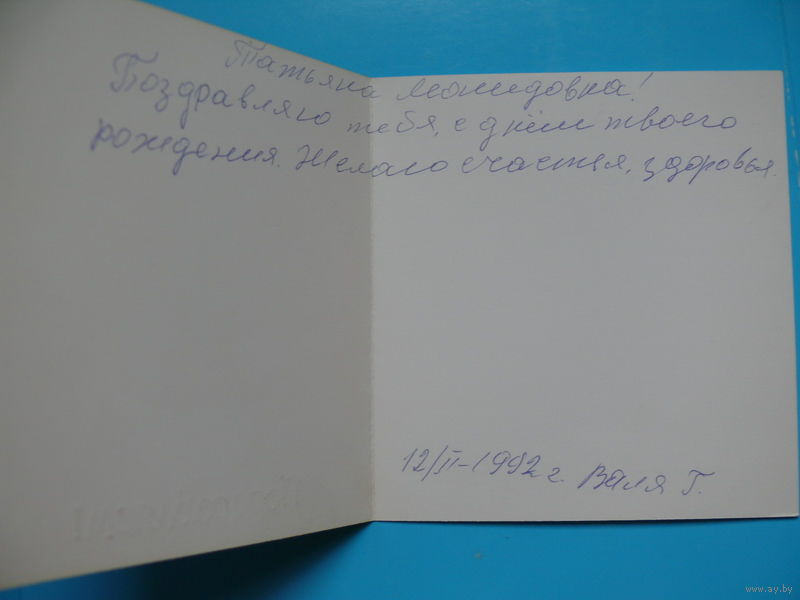 Татьяна
Поздравляю тебя, с днём твоего
рождения. Желаю счастья, здоровья.
12/II-1992 г. Валя Г.
www.ay.by